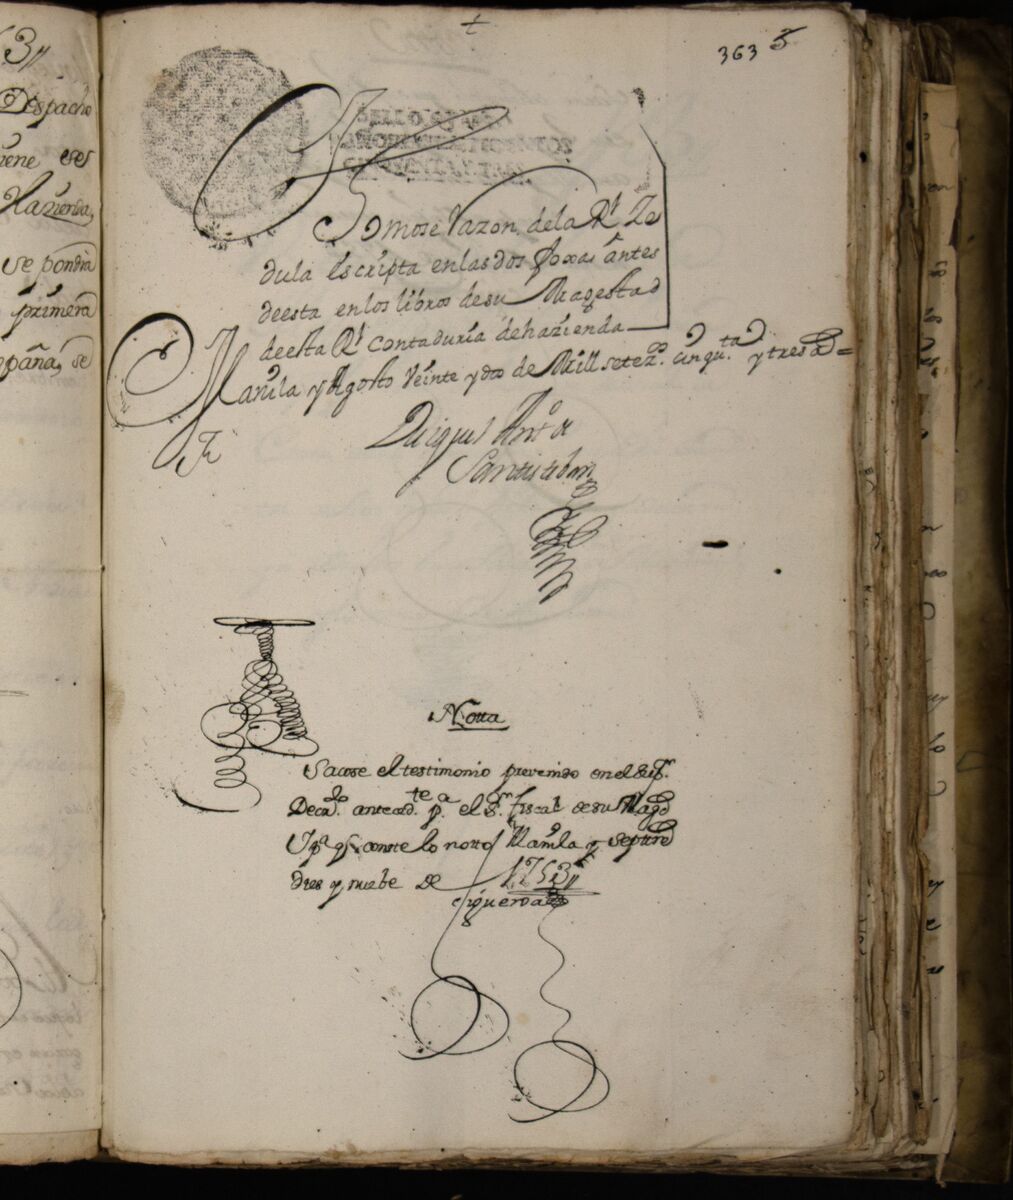 3ꞁꞁ
Despacho
viene es
Hazienda,
se pondra
primera
spaña, se
+
363 5
Tomose razon de la Rl. Ze
dula Escripta en las dos foxas antes
deesta en los libros de su Magestad
deesta Rl. Contaduria de hazienda
Manila y Agosto Veinte y dos de Mill setezos. cinquta. y tres ad =
Miguel Anto. de
Santistevan
Notta
Sacose el testimonio prevenido en el Supr.
Decrto. antecedte. pa. el Sr. fiscal de su Magd
Y pa. q. conste lo noto Manila y Septre
dies y nuebe de 1753ꞁꞁ